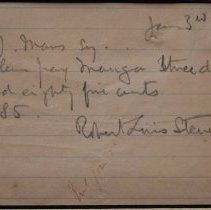 Jan 3rd
J. Moors Esq.
pay Mauga
d eighty five cents
85.
Robert Louis Steve